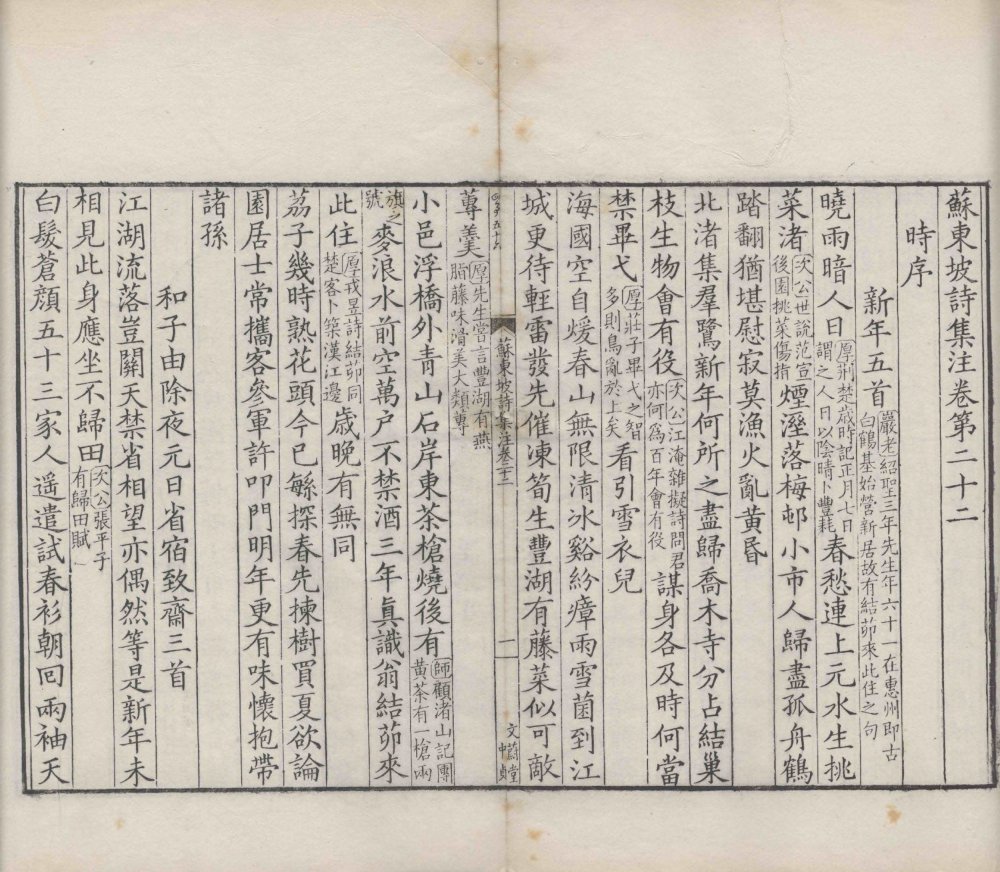 蘇東坡詩集注卷第二十二
時序
新年五首嚴老紹聖三年先生年六十一在惠州即古
白鶴基始營新居故有結茆來此住之句
曉雨暗人日厚荆楚歲時記正月七日
謂之人日以陰晴卜豐耗春愁連上元水生挑
菜渚次公世說范宣
後園挑菜傷指煙溼落梅邨小市人歸盡孤舟鶴
踏翻猶堪慰寂莫漁火亂黃昏
北渚集羣鷺新年何所之盡歸喬木寺分占結巢
枝生物會有役次公江淹雜擬詩問君
亦何爲百年會有役謀身各及時何當
禁畢弋厚莊子畢弋之智
多則鳥亂於上矣看引雪衣兒
海國空自煖春山無限清冰谿紛瘴雨雪菌到江
城更待輕雷發先催凍筍生豐湖有藤菜似可敵
蓴羹厚先生嘗言豐湖有燕
脜藤味滑美大類蓴
蘇東坡詩集注卷二十二
一
文蔚堂
小邑浮橋外青山石岸東茶槍燒後有師顧渚山記團
黃茶有一槍兩
旗之
號麥浪水前空萬戶不禁酒三年眞識翁結茆來
此住厚戎昱詩結茆同
楚客卜築漢江邊歲晚有無同
荔子幾時熟花頭今已緐探春先揀樹買夏欲論
園居士常攜客參軍許叩門明年更有味懷抱帶
諸孫
和子由除夜元日省宿致齋三首
江湖流落豈關天禁省相望亦偶然等是新年未
相見此身應坐不歸田次公張平子
有歸田賦
白髮蒼顏五十三家人遥遣試春衫朝回兩袖天